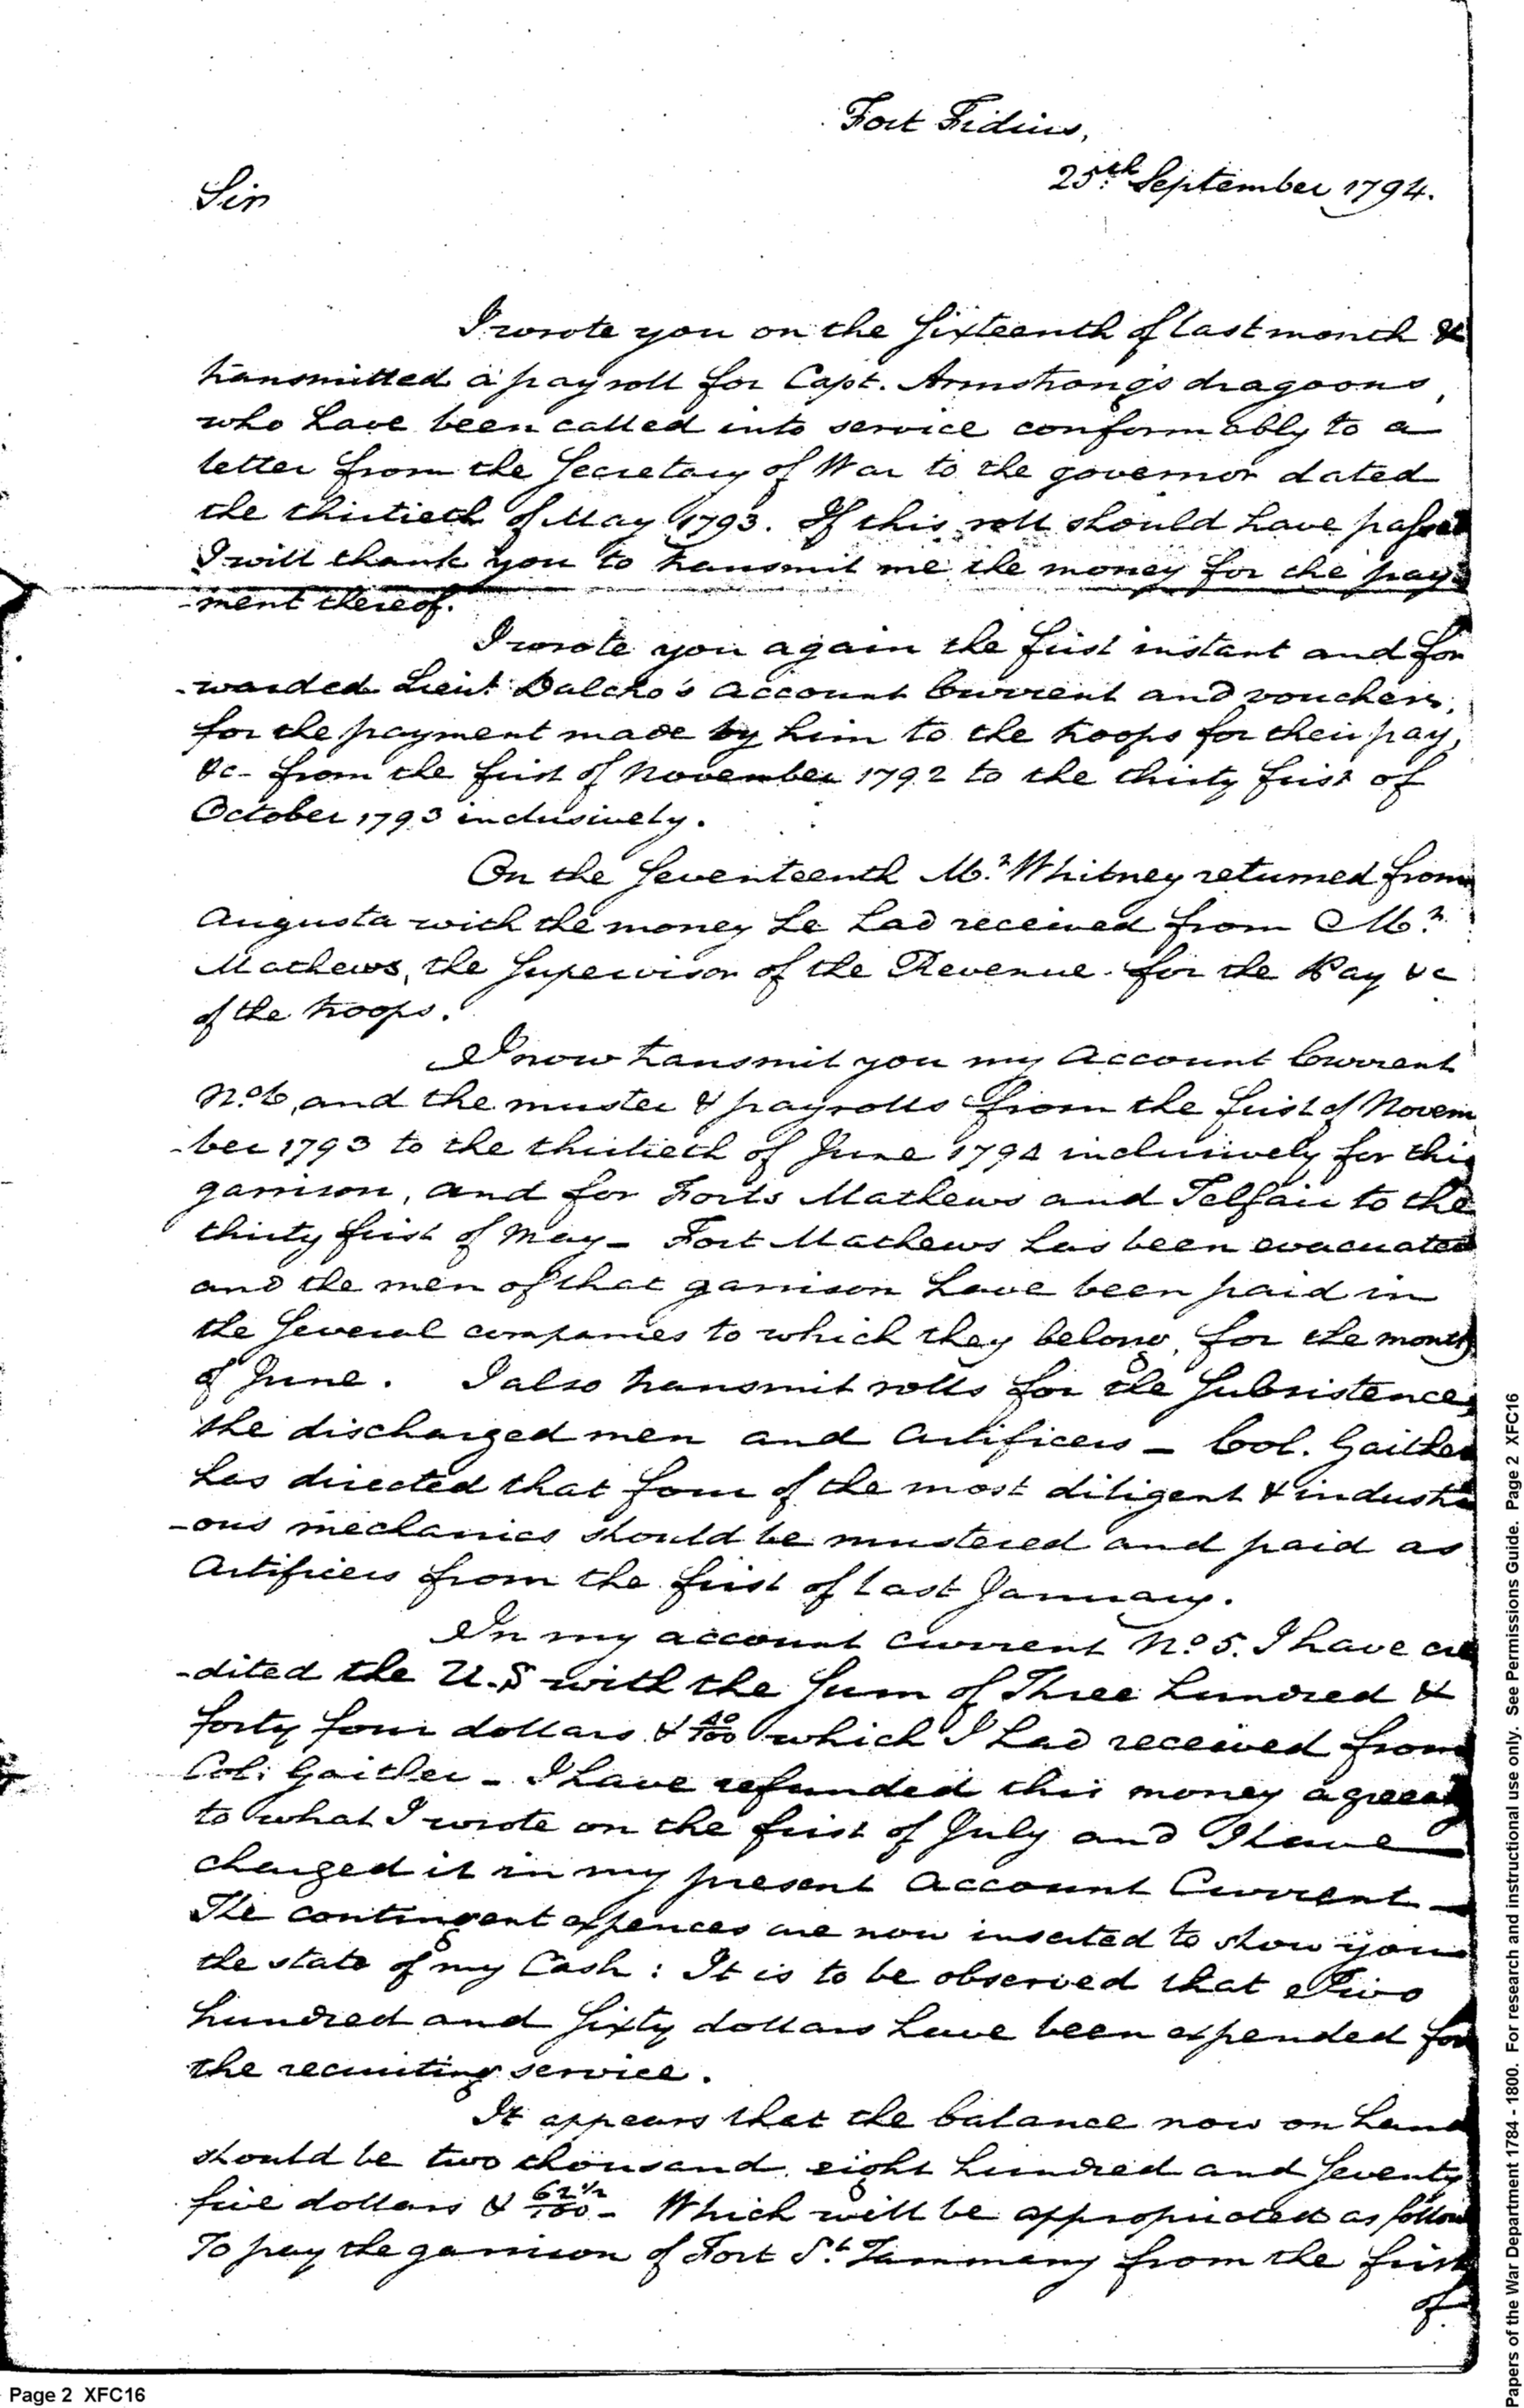 Fort Fidius,
25th September 1794.
Sir
I wrote you on the sixteenth of last month &
transmitted a pay roll for Capt. Armstrong's dragoons,
who have been called into service conformably to a
letter from the Secretary of War to the governor dated
the thirtieth of May 1793. If this roll should have passed
I will thank you to transmit me the money for the pay-
-ment thereof.
I wrote you again the first instant and for
-warded Lieut. Dalcho's account Current and vouchers,
for the payment made by him to the troops for their pay,
&c- from the first of November 1792 to the thirty first of
October 1793 inclusively.
On the seventeenth Mr. Whitney returned from
Augusta with the money he had received from Mr.
Mathews, the Supervisor of the Revenue for the Pay &c
of the troops.
I now transmit you my Account Current
No. 6, and the muster & payrolls from the first of Novem
-ber 1793 to the thirtieth of June 1794 inclusively for this
garrison, and for Forts Mathews and Telfair to the
thirty first of May - Fort Mathews has been evacuated
and the men of that garrison have been paid in
the several companies to which they belong, for the month
of June. I also transmit rolls for the Subsistence,
the discharged men and Artificers - Col. Gaither
has directed that four of the most diligent & industri
-ous mechanics should be mustered and paid as
Artificers from the first of last January.
In my account current No. 5. I have cre
-dited the U.S with the Sum of Three hundred &
forty four dollars & 40/100 which I had received from
Col: Gaither - I have refunded this money agreeably
to what I wrote on the first of July and I have
charged it in my present Account Current -
The contingent expences are now inserted to show you
the state of my Cash : It is to be observed that Two
hundred and sixty dollars have been expended for
the recruiting service.
It appears that the balance now on hand
should be two thousand eight hundred and seventy
five dollars & 62 1/2/100 - Which will be appropriated as follows
To pay the garrison of Fort St. Tammany from the first
of
Page 2 XFC16
Papers of the War Department 1784 - 1800. For research and instructional use only. See Permissions Guide. Page 2 XFC16